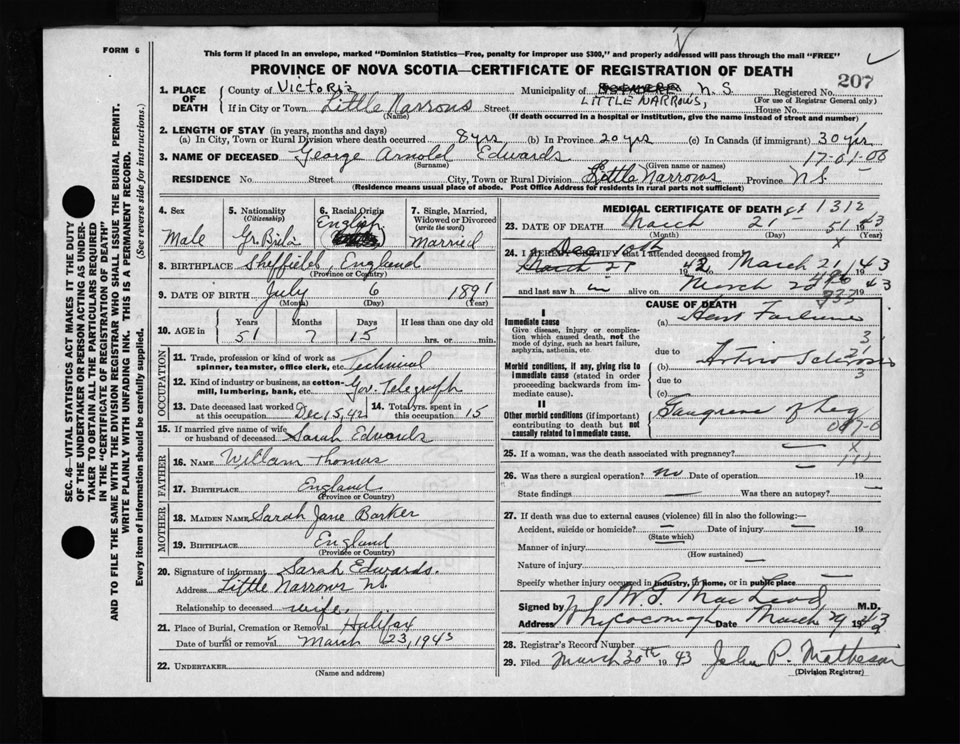 FORM 6
This form if placed in an envelope, marked "Dominion Statistics—Free, penalty for improper use $300," and properly addressed will pass through the mail "FREE"
PROVINCE OF NOVA SCOTIA—CERTIFICATE OF REGISTRATION OF DEATH
207
1. PLACE OF DEATH
County of Victoria Municipality of N. S. Registered No.
(For use of Registrar General only)
If in City or Town Little Narrows Street LITTLE NARROWS, House No.
(Name) (If death occurred in a hospital or institution, give the name instead of street and number)
2. LENGTH OF STAY (in years, months and days)
(a) In City, Town or Rural Division where death occurred 8 yrs (b) In Province 20 yrs (c) In Canada (if immigrant) 30 yrs
3. NAME OF DECEASED George Arnold Edwards 17-01-00
(Surname) (Given name or names)
RESIDENCE No. Street City, Town or Rural Division Little Narrows Province N.S.
(Residence means usual place of abode. Post Office Address for residents in rural parts not sufficient)
4. Sex
Male
5. Nationality
(Citizenship)
Gr. Britn
6. Racial Origin
English
7. Single, Married, Widowed or Divorced
(write the word)
Married
8. BIRTHPLACE Sheffield, England
(Province or Country)
9. DATE OF BIRTH July 6 1891
(Month) (Day) (Year)
10. AGE in
Years Months Days If less than one day old
51 7 15 hrs. or min.
OCCUPATION
11. Trade, profession or kind of work as spinner, teamster, office clerk, etc. Technical
12. Kind of industry or business, as cotton-mill, lumbering, bank, etc. Gov. Telegraph
13. Date deceased last worked at this occupation Dec 15, 42
14. Total yrs. spent in this occupation 15
15. If married give name of wife or husband of deceased Sarah Edwards
FATHER
16. NAME William Thomas
17. BIRTHPLACE England
(Province or Country)
MOTHER
18. MAIDEN NAME Sarah Jane Barker
19. BIRTHPLACE England
(Province or Country)
20. Signature of informant Sarah Edwards.
Address Little Narrows N.S.
Relationship to deceased wife.
21. Place of Burial, Cremation or Removal Halifax
Date of burial or removal March 23, 1943
22. UNDERTAKER
(Name and address)
MEDICAL CERTIFICATE OF DEATH 1312
23. DATE OF DEATH March 21 51 43
(Month) (Day) (Year)
24. I HEREBY CERTIFY that I attended deceased from
Dec 10th 1942 March 21 1943
and last saw h im alive on March 20 1943
CAUSE OF DEATH
I
Immediate cause
Give disease, injury or complication which caused death, not the mode of dying, such as heart failure, asphyxia, asthenia, etc.
(a) Heart Failure
due to
Morbid conditions, if any, giving rise to immediate cause (stated in order proceeding backwards from immediate cause).
(b)
due to
(c)
II
Other morbid conditions (if important) contributing to death but not causally related to immediate cause.
Gangrene of Leg
25. If a woman, was the death associated with pregnancy?
26. Was there a surgical operation? No Date of operation 19
State findings Was there an autopsy?
27. If death was due to external causes (violence) fill in also the following:—
Accident, suicide or homicide? Date of injury 19
(State which)
Manner of injury
(How sustained)
Nature of injury
Specify whether injury occurred in industry, in home, or in public place
Signed by MacLeod M.D.
Address Whycocomagh Date March 29 1943
28. Registrar's Record Number
29. Filed March 30th 1943 John P. Matheson
(Division Registrar)
SEC. 46—VITAL STATISTICS ACT MAKES IT THE DUTY
OF THE UNDERTAKER OR PERSON ACTING AS UNDER-
TAKER TO OBTAIN ALL THE PARTICULARS REQUIRED
IN THE "CERTIFICATE OF REGISTRATION OF DEATH"
AND TO FILE THE SAME WITH THE DIVISION REGISTRAR WHO SHALL ISSUE THE BURIAL PERMIT.
WRITE PLAINLY WITH UNFADING INK. THIS IS A PERMANENT RECORD.
Every item of information should be carefully supplied. (See reverse side for instructions.)